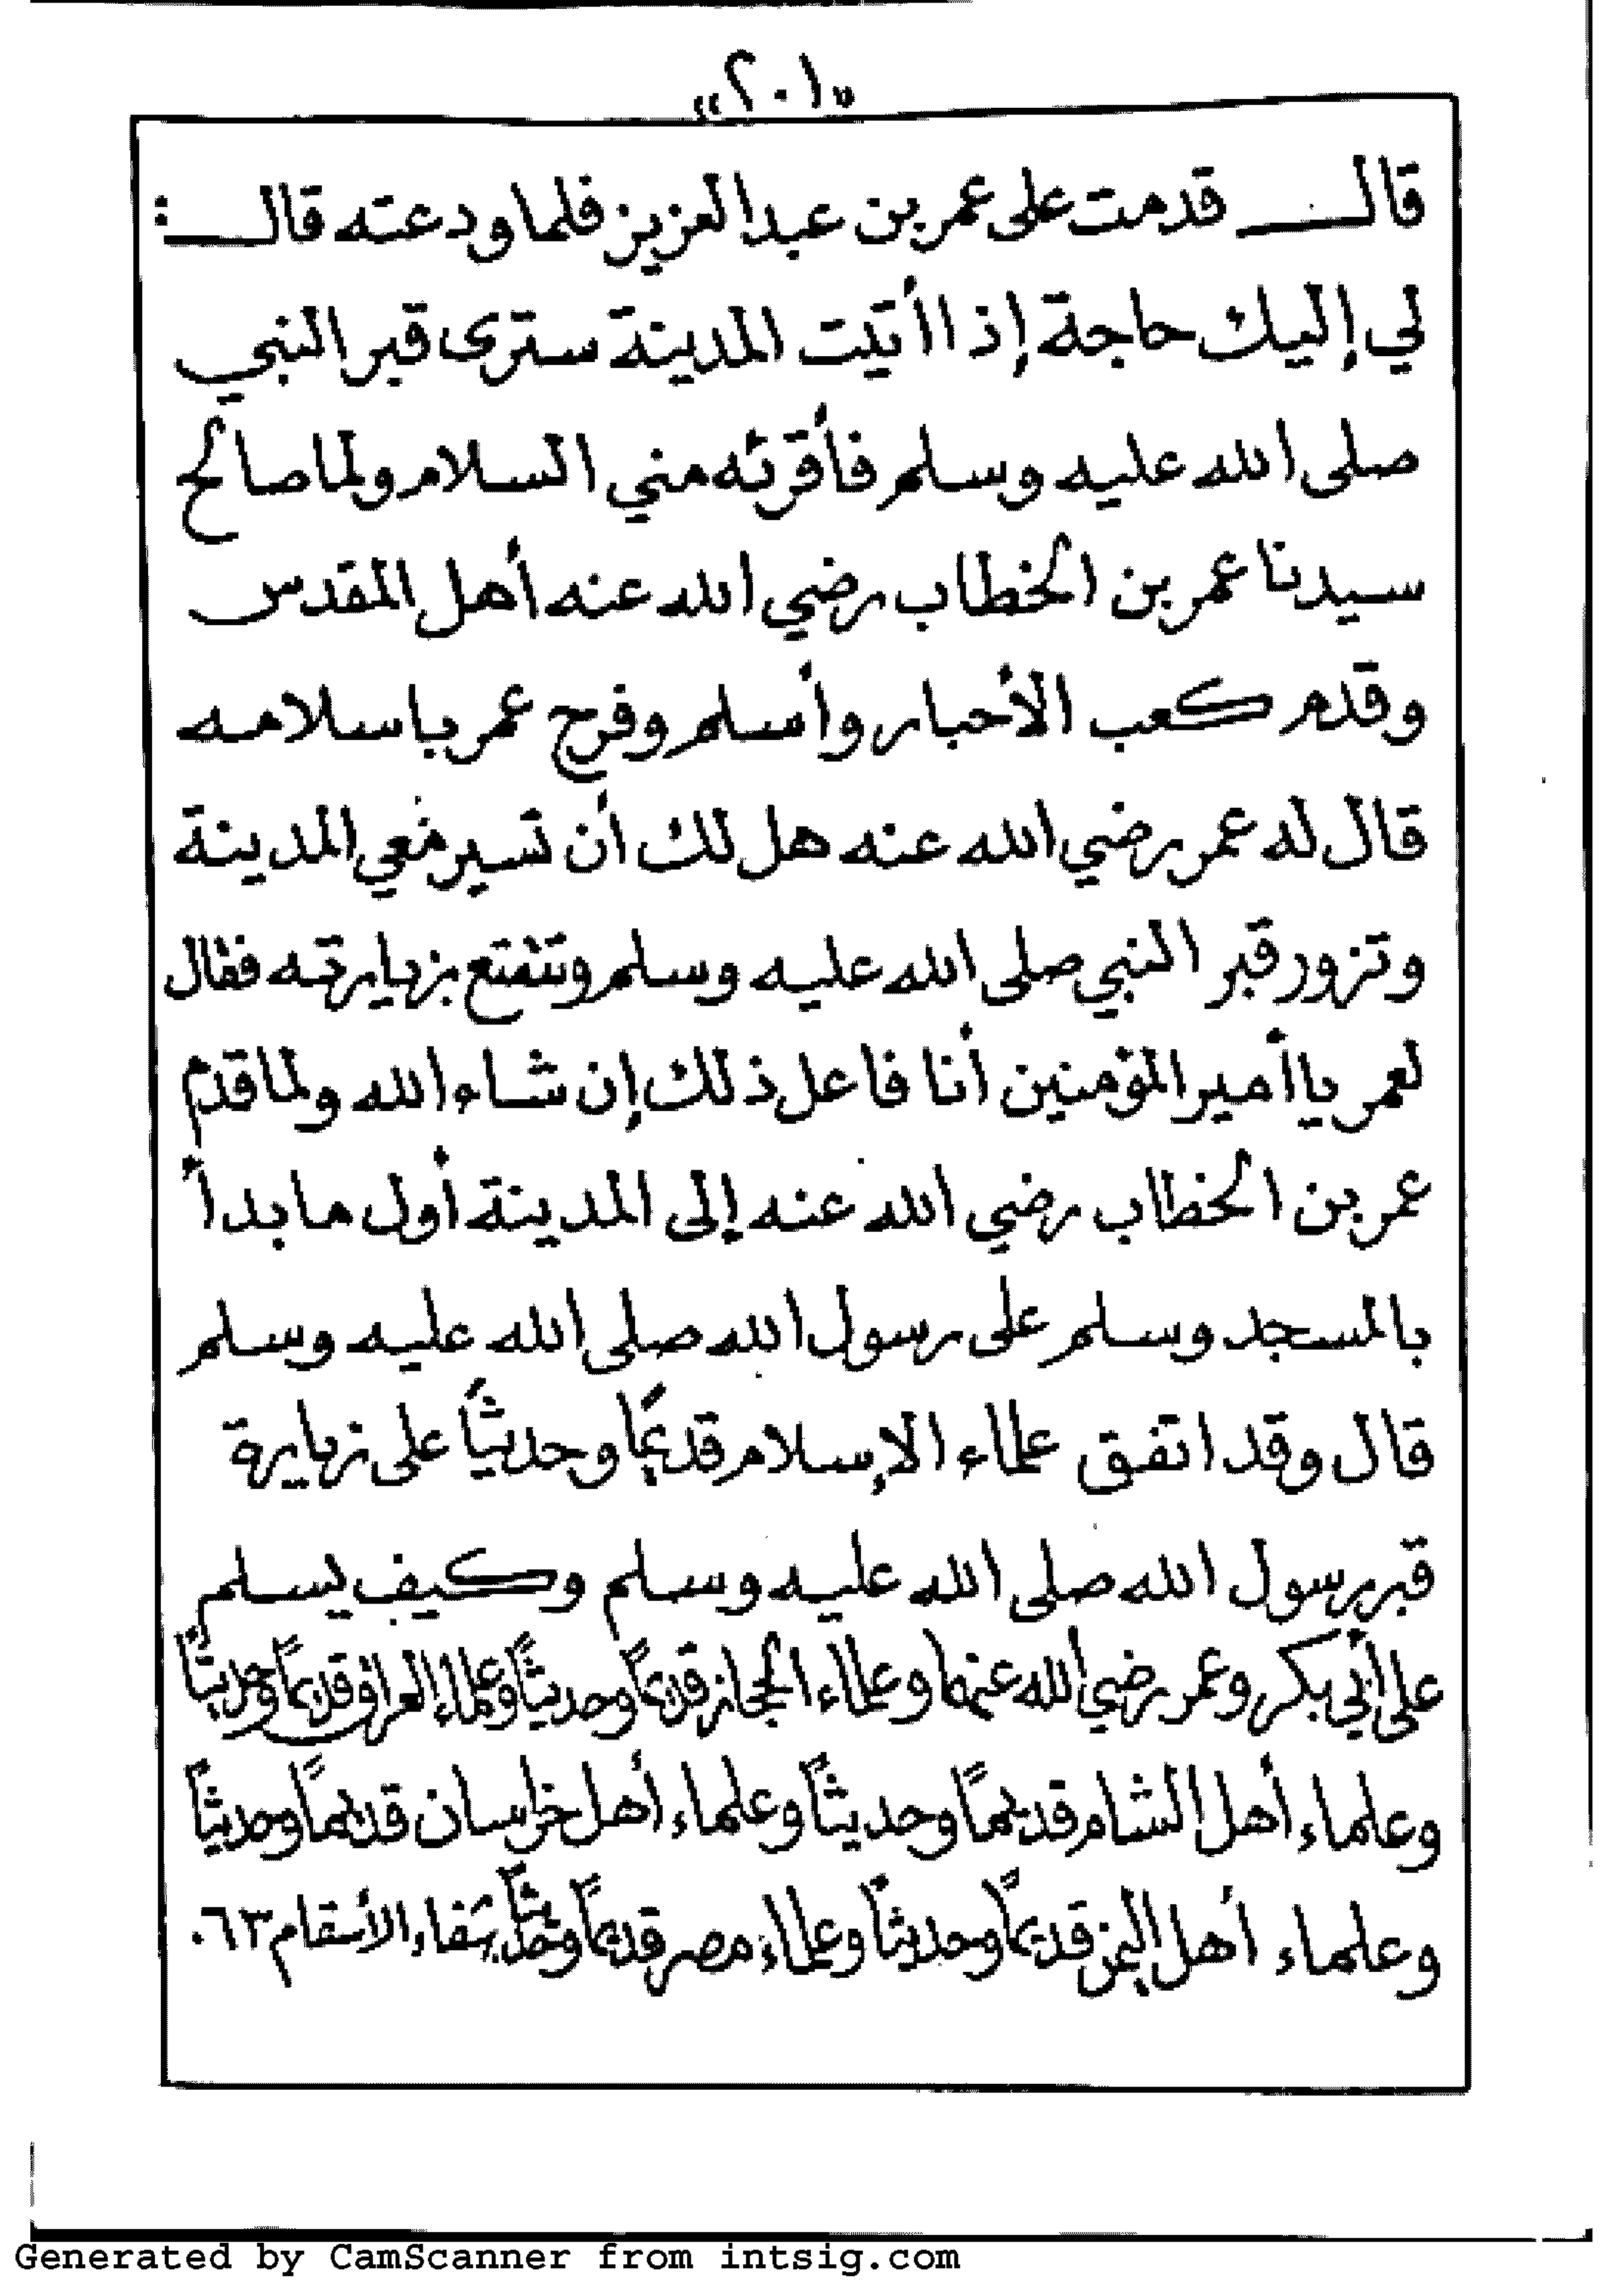 «٢٠١»
قال قدمت على عمر بن عبد العزيز فلما ودعته قال :
لي إليك حاجة إذا أتيت المدينة سترى قبر النبي
صلى الله عليه وسلم فأقرئه مني السلام ولما صالح
سيدنا عمر بن الخطاب رضي الله عنه أهل المقدس
وقدم كعب الأحبار وأسلم وفرح عمر باسلامه
قال له عمر رضي الله عنه هل لك أن تسير معي المدينة
وتزور قبر النبي صلى الله عليه وسلم وتتمتع بزيارته فقال
لعمر يا أمير المؤمنين أنا فاعل ذلك إن شاء الله ولما قدم
عمر بن الخطاب رضي الله عنه إلى المدينة أول ما بدأ
بالمسجد وسلم على رسول الله صلى الله عليه وسلم
قال وقد اتفق علماء الإسلام قديمًا وحديثاً على زيارة
قبر رسول الله صلى الله عليه وسلم وكيف يسلم
على أبي بكر وعمر رضي الله عنهما وعلماء الحجاز قديمًا وحديثاً وعلماء العراق قديمًا وحديثاً
وعلماء أهل الشام قديمًا وحديثاً وعلماء أهل خراسان قديمًا وحديثاً
وعلماء أهل اليمن قديمًا وحديثاً وعلماء مصر قديمًا وحديثاً شفاء الأسقام ٦٣.
Generated by CamScanner from intsig.com